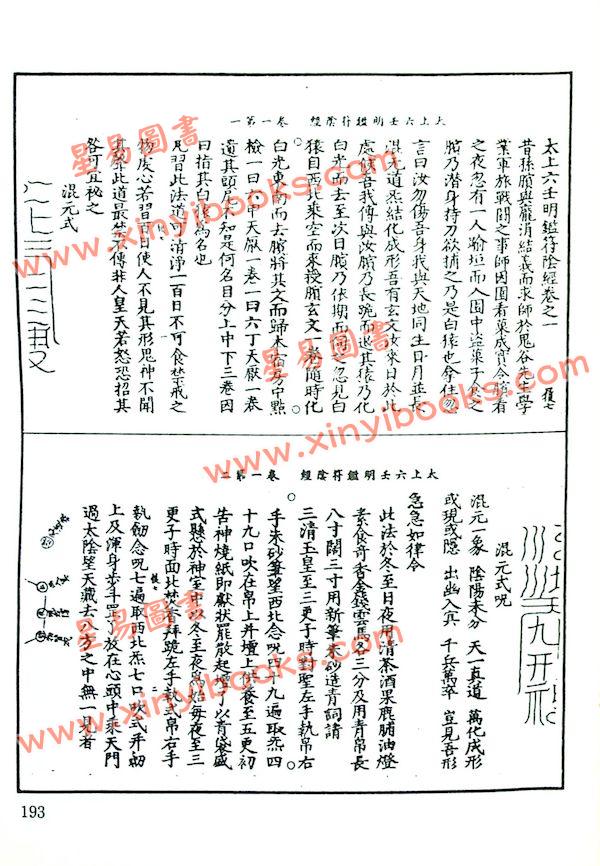 太上六壬明鑑符陰經 卷一第一
太上六壬明鑑符陰經卷之一
昔孫臏與龐涓結義而求師於鬼谷先生學
業軍旅戰鬪之事師因園看菓成實令臏看
之夜忽有一人踰垣而入園中盜菓子食之
臏乃潛身持刀欲捕之乃是白猿也拿住忽
言曰汝勿傷吾身我與天地同生日月並長
混元道炁結化成形吾有玄文汝來日於此
處候吾我傳與汝臏乃長跪而也其猿乃化
白光而去至次日臏乃依期而同之忽見白
猿自西北乘空而來授臏玄文一卷隨時化
白光東南而去臏將其文而歸本宿房中點
檢一曰六甲天厭一卷一曰六丁天厭一卷
遺其頭尾不知是何名目分上中下三卷因
曰指其白猿為名也
凡習此法道可清淨一百日不可食葷戒之
物虔心若習百日使人不見其形鬼神不聞
其聲此道最禁不傳非人皇天若怒恐招其
咎可宜秘之
混元式
太上六壬明鑑符陰經 卷一第二
混元式呪
混元一象 陰陽未分 天一真道 萬化成形
或現或隱 出幽入冥 千兵萬卒 豈見吾形
急急如律令
此法於冬至日夜用清茶酒果鹿脯油燈
素食奇香金錢雲馬各三分及用青帛長
八寸闊三寸用新筆朱砂造青詞請
三清玉皇至三更子時對聖左手執帛右
手朱砂筆望西北念呪四十九遍取炁四
十九口吹在帛上并壇上供養至五更初
苦神燒紙即獻狀罷散起壇了以青袋盛
式懸於神室中以冬至夜為始每夜至三
更子時面北焚香拜跪左手執式帛右手
執劍念呪七遍取西北炁七口吹式并劍
上及渾身步斗罡了放在心頭中乘天門
過太陰望天藏去八方之中無一見者
193
星易圖書
www.xinyibooks.com
星易圖書
www.xinyibooks.com
星易圖書
www.xinyibooks.com
星易圖書
www.xinyibooks.com